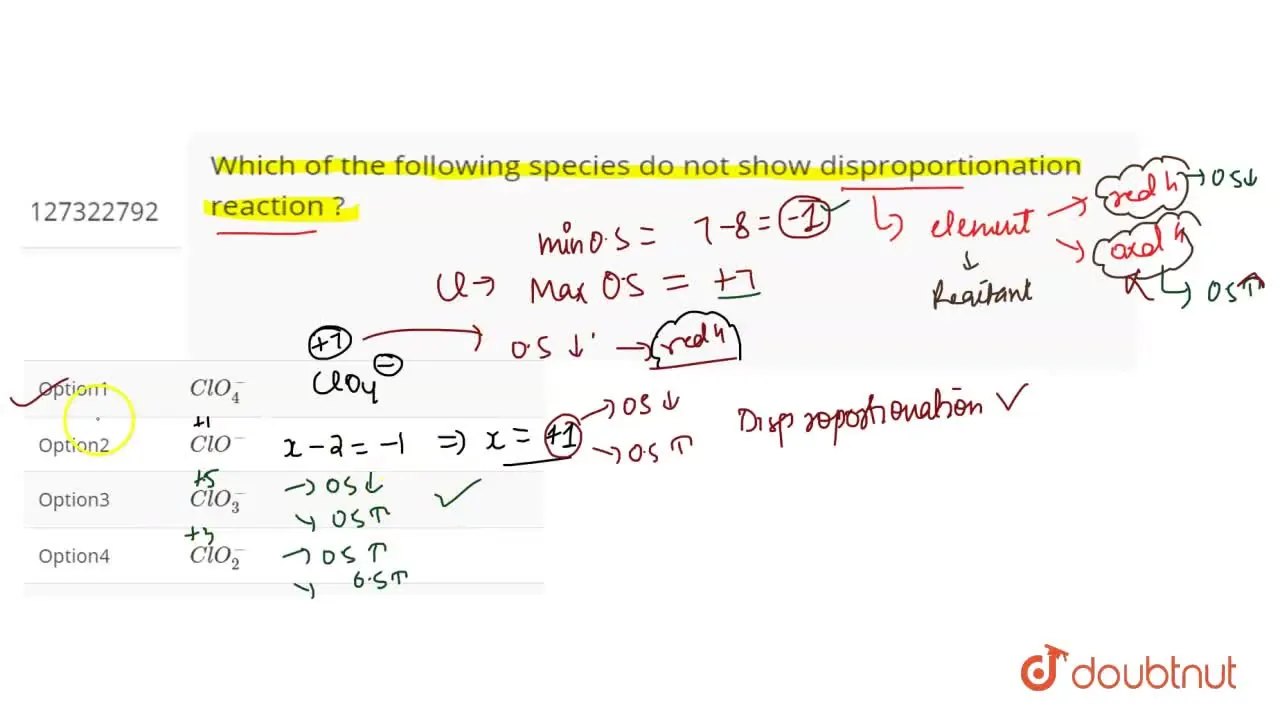 Which of the following species do not show disproportionation
reaction ?
127322792
min O.S = 7-8 = -1
Cl → Max O.S = +7
element
Reactant
red n → OS↓
oxd n
→ OS↑
+7
ClO4 −
O.S ↓ → red n
Option1 ClO₄⁻
+1
Option2 ClO⁻ x-2=-1 ⇒ x = +1
→ OS ↓
→ O.S ↑
Disproportionation ✓
+5
Option3 ClO₃⁻ → OS ↓ ✓
→ OS↑
+3
Option4 ClO₂⁻ → OS ↑
→ O.S↑
doubtnut